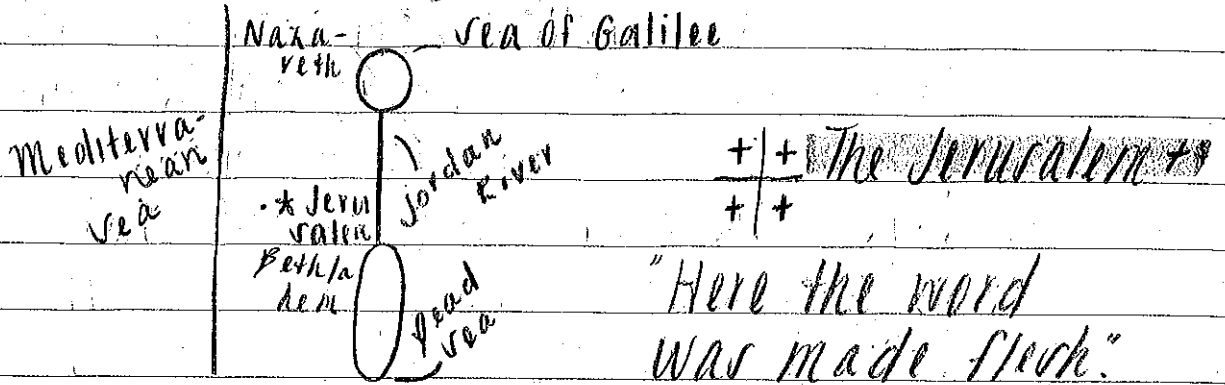 Naza-
reth
Sea of Galilee
Mediterra-
nean
Sea
Jordan
River
* Jeru
salem
Bethle
dem
Dead
Sea
+ + The Jerusalem ++
+ +
"Here the word
was made flesh."